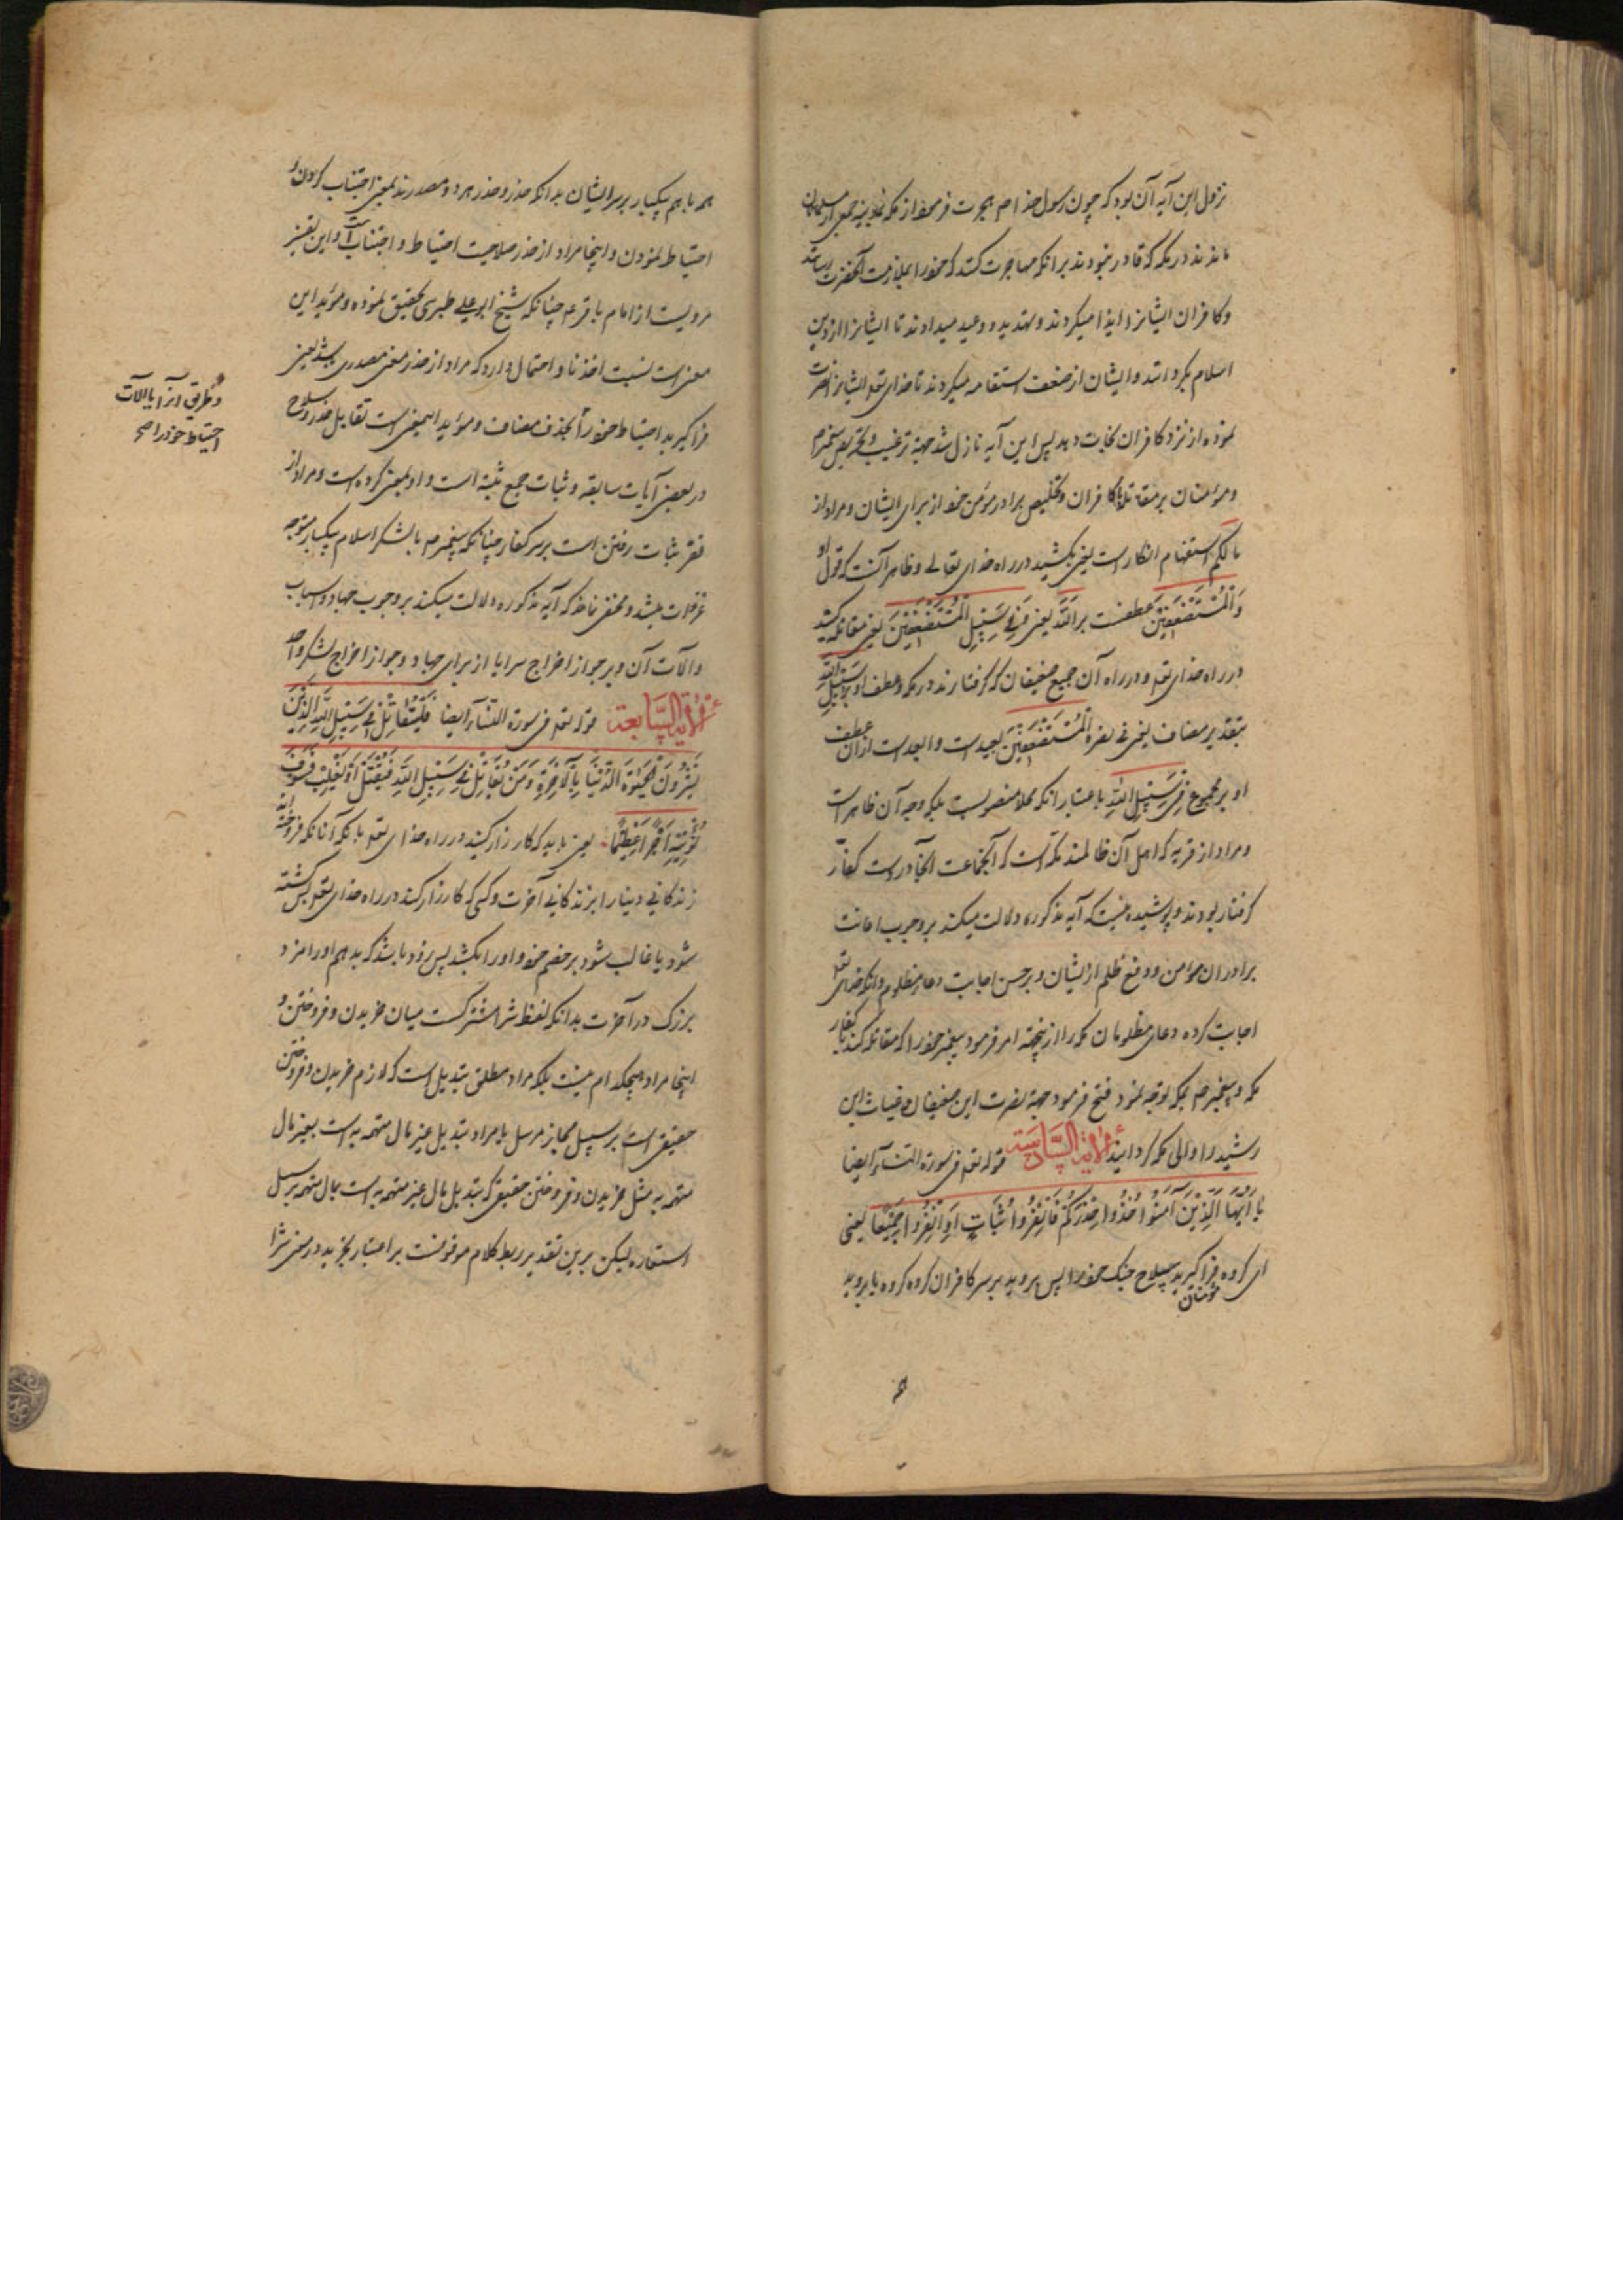 نزول این آیه آن بود که چون رسول خدا صم هجرت فرمود از مکه بمدینه جمعی از مسلمانان
ماندند در مکه که قادر نبودند برانکه مهاجرت کنند که خود را بملازمت آنحضرت رسانند
و کافران ایشانرا ایذا میکردند و تهدید و وعید میدادند تا ایشانرا از دین
اسلام بگردانند و ایشان از ضعف استقامه میکردند تا خدای تعه ایشانرا نصرت
نموده از نزد کافران نجات دهد پس این آیه نازل شد جهة ترغیب و تحریص پیغمبرم
و مؤمنان بر مقاتلهٔ کافران و تخلیص برادر مؤمن خود از برای ایشان و مراد از
مالکم استفهام انکار است یعنی بکشید در راه خدای تعالی و ظاهر آنست که قول او
وَالْمُسْتَضْعَفِینَ عطفست بر اللّه یعنی وَفِی سَبِیلِ الْمُسْتَضْعَفِینَ یعنی مقاتله کنید
در راه خدای تعه و در راه آن جمیع ضعیفان که گرفتارند در مکه و عطف او بر سبیل اللّه
بتقدیر مضاف یعنی فی نصرة الْمُسْتَضْعَفِینَ بعید است و ابعد است از ان عطف
او بر مجموع فِی سَبِیلِ اللّهِ باعتبار انکه محلا منصوبست بلکه وجه آن ظاهر است
و مراد از قریه که اهل آن ظالمند مکه است که آنجماعت آنجا در دست کفار
گرفتار بودند و پوشیده نیست که آیه مذکوره دلالت میکند بر وجوب اعانت
برادران مؤمن و دفع ظلم از ایشان و بر حسن اجابت دعاء مظلوم و انکه خدای تعه
اجابت کرده دعای مظلومان مکه را از ینجهة امر فرمود پیغمبر خود را که مقاتله کند با کفار
مکه و پیغمبر صم بمکه توجه نمود فتح فرمود جهة نصرت این ضعیفان و غیاث این
رشید را والی مکه گردانید الآیة السّادسة قوله تعه فی سورة النسآء ایضا
یَا أَیُّهَا الَّذِینَ آمَنُوا خُذُوا حِذْرَکُمْ فَانْفِرُوا ثُبَاتٍ أَوِ انْفِرُوا جَمِیعًا یعنی
ای گروه مؤمنان فرا گیرید سلاح جنک خود را پس بروید بر سر کافران گروه گروه یا بروید
همه
همه با هم بیکبار بر سر ایشان بدانکه حذر و حذر هر دو مصدرند بمعنی اجتناب کردن و
احتیاط نمودن و اینجا مراد از حذر صلاحیت احتیاط و اجتناب است و این تفسیر
مرویست از امام باقر عم چنانکه شیخ ابو علی طبرسی تحقیق نموده و مؤید این
معنی است نسبت اخذ با و احتمال دارد که مراد از حذر معنی مصدری باشد یعنی
فرا گیرید احتیاط خود را بحذف مضاف و مؤید اینمعنی است تقابل حذر و سلاح
در بعضی آیات سابقه و ثبات جمع ثبة است و او بمعنی گروه است و مراد از
نفر ثبات رفتن است بر سر کفار چنانکه پیغمبر صم با لشکر اسلام بیکبار متوجه
غزوات میشد و مخفی نماند که آیه مذکوره دلالت میکند بر وجوب جهاد و اسباب
و آلات آن و بر جواز اخراج سرایا از برای جهاد و جواز اخراج لشکر واحد
الآیة السّابعة قوله تعه فی سورة النسآء ایضا فَلْیُقَاتِلْ فِی سَبِیلِ اللّهِ الَّذِینَ
یَشْرُونَ الْحَیٰوةَ الدُّنْیَا بِالْآخِرَةِ وَمَنْ یُقَاتِلْ فِی سَبِیلِ اللّهِ فَیُقْتَلْ أَوْ یَغْلِبْ فَسَوْفَ
نُؤْتِیهِ أَجْرًا عَظِیمًا یعنی باید که کارزار کنند در راه خدای تعه بانکه آنانکه فروخته اند
زندگانی دنیا را بزندگانی آخرت و کسی که کارزار کند در راه خدای تعه پس کشته
شود یا غالب شود بر خصم خود و او را بکشد پس زود باشد که بدهیم او را مزد
بزرک در آخرت بدانکه لفظ شرا مشترکست میان خریدن و فروختن و
اینجا مراد هیچکدام نیست بلکه مراد مطلق تبدیل است که لازم خریدن و فروختن
حقیقی است بر سبیل مجاز مرسل یا مراد تبدیل غیر مال متهمه به است بغیر مال
متهمه به مثل خریدن و فروختن حقیقی که تبدیل مال غیر متهمه به است بمال متهمه بر سبیل
استعاره لیکن برین تقدیر ربط کلام موقوفست بر اعتبار تجرید در معنی شرا
و طریق انرا یا آلات
احتیاط خود را صح